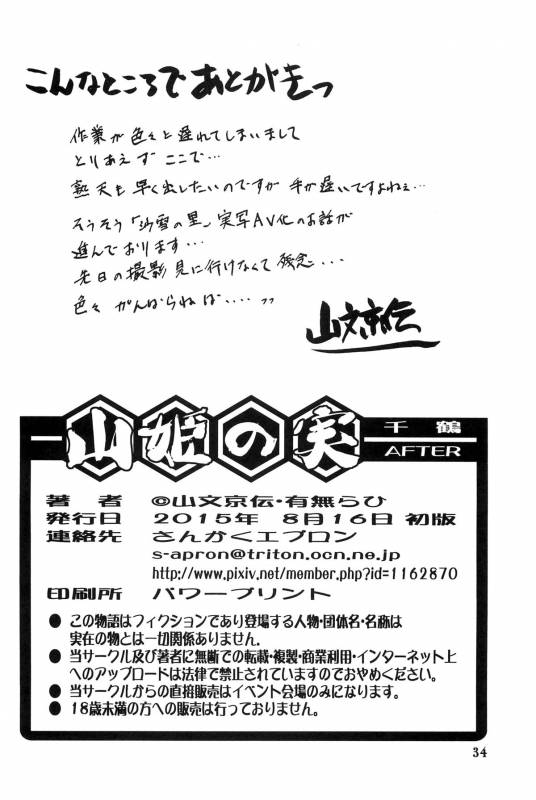 こんなところであとがきっ
作業が色々と遅れてしまいまして
とりあえず ここで…
熟天も早く出したいのですが 手が遅いですよねぇ…
そうそう「沙雪の里」実写AV化のお話が
進んでおります…
先日の撮影見に行けなくて残念...
色々 がんばらねば....
山文京伝
山姫の実
千鶴
AFTER
著者 ©山文京伝・有無らひ
発行日 2015年 8月16日 初版
連絡先 さんかくエプロン
s-apron@triton.ocn.ne.jp
http://www.pixiv.net/member.php?id=1162870
印刷所 パワープリント
● この物語はフィクションであり登場する人物・団体名・名称は
実在の物とは一切関係ありません。
● 当サークル及び著者に無断での転載・複製・商業利用・インターネット上
へのアップロードは法律で禁止されていますのでおやめください。
● 当サークルからの直接販売はイベント会場のみになります。
● 18歳未満の方への販売は行っておりません。
34